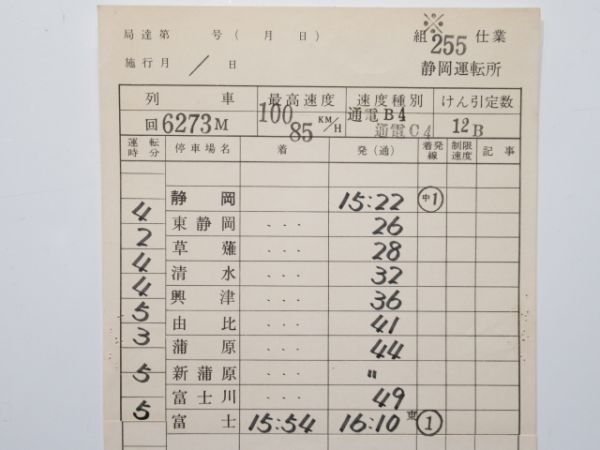 局達第 号( 月 日) 組 ※255 仕業
施行月 / 日 静岡運転所
列 車 最高速度 速度種別 けん引定数
回6273M 100 85 KM/H 通電B4 通電C4 12B
運転時分 停車場名 着 発(通) 着発線 制限速度 記事
静岡 15:22 中1
4 東静岡 ・・・ 26
2 草薙 ・・・ 28
4 清水 ・・・ 32
4 興津 ・・・ 36
5 由比 ・・・ 41
3 蒲原 ・・・ 44
新蒲原 ・・・ 〃
5 富士川 ・・・ 49
5 富士 15:54 16:10 東1